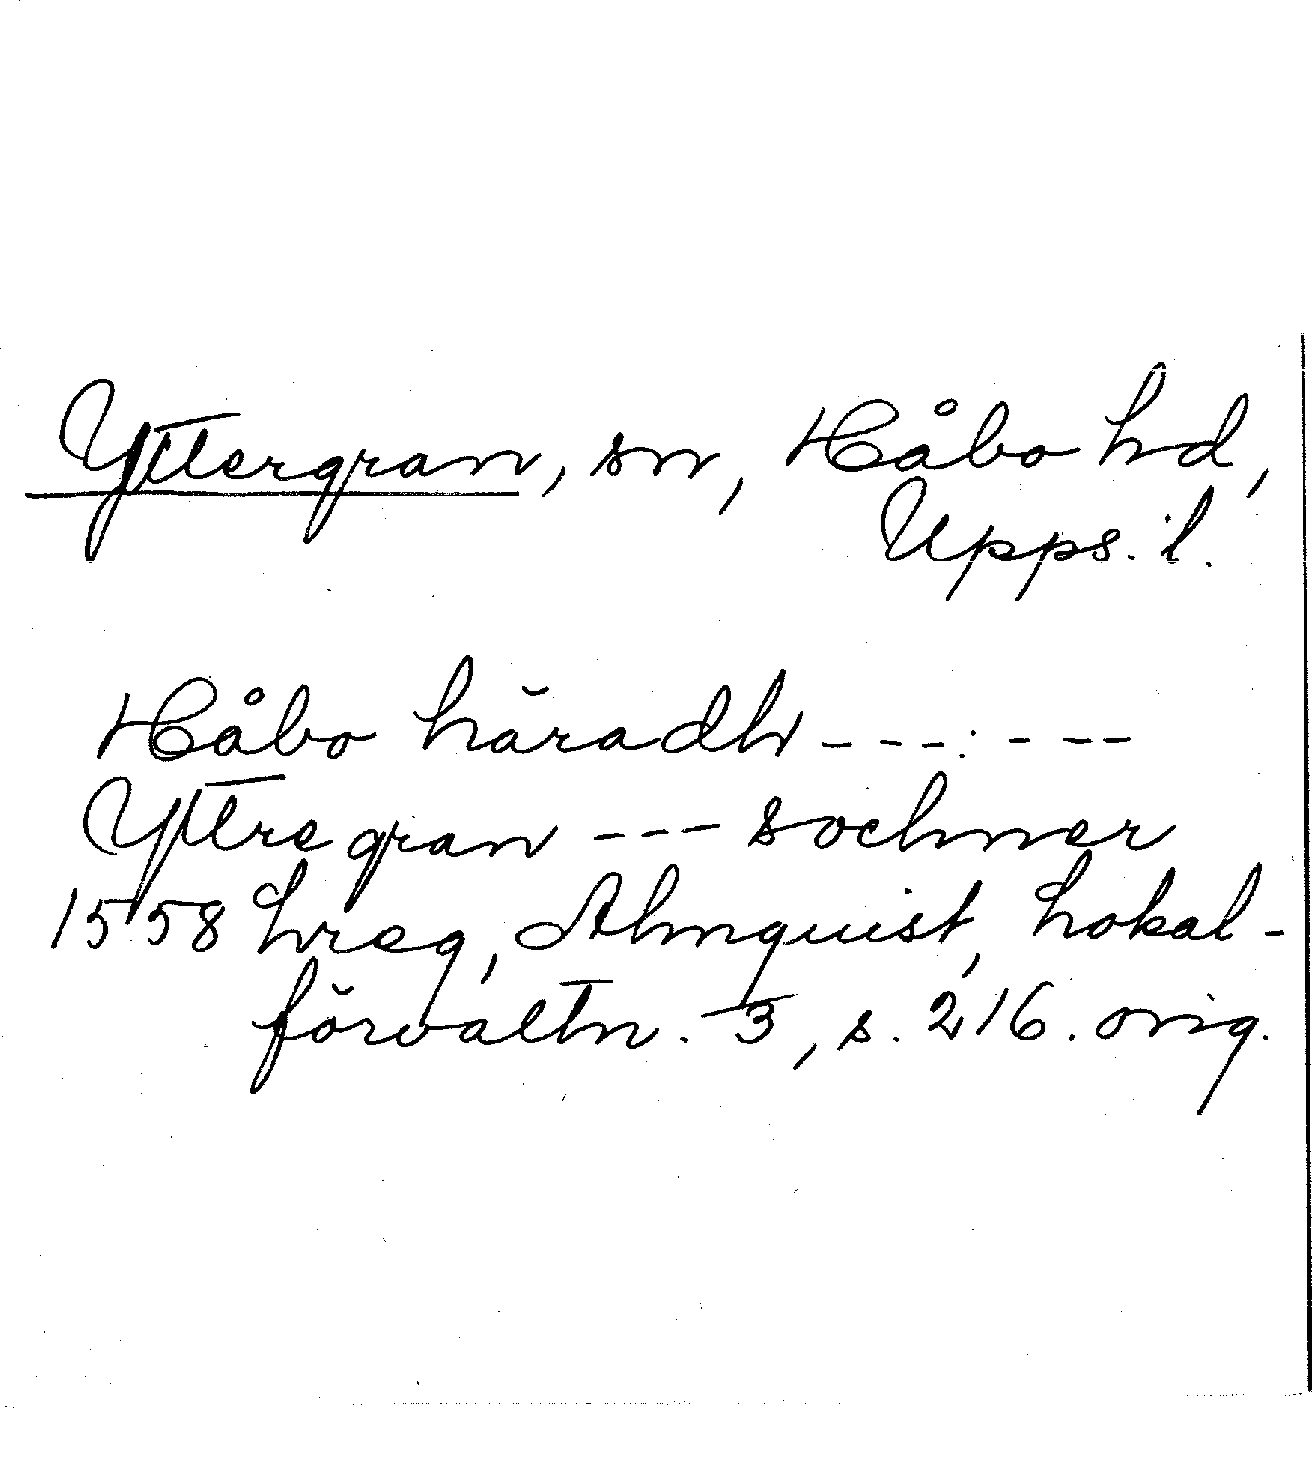 Yttergran, sn, Håbo hd,
Upps. l.
Håbo häradh - - - : - - -
Yttre gran - - - sochner
1558 hreg, Almquist, Lokal-
förvaltn. 3, s. 216. orig.